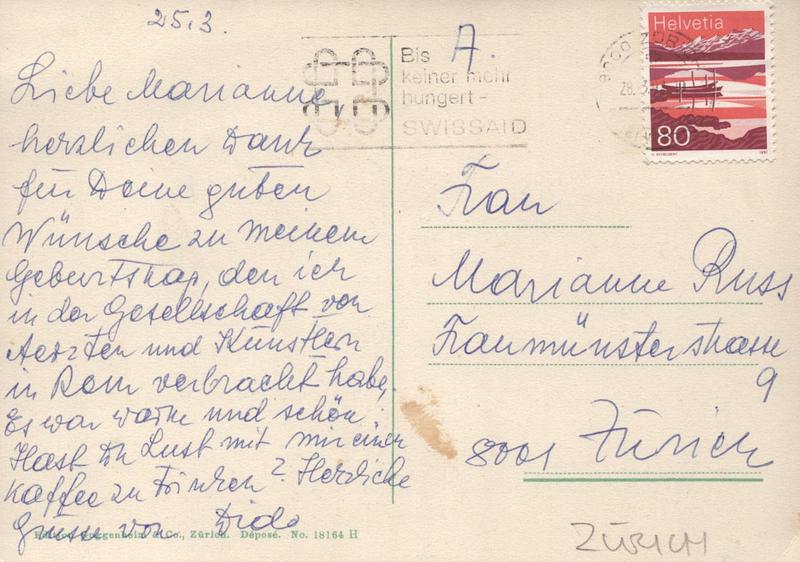 25.3.
A.
Bis
keiner mehr
hungert-
SWISSAID
28.3.
Helvetia
80
Liebe Marianne
herzlichen Dank
für Deine guten
Wünsche zu meinem
Geburtstag, den ich
in der Gesellschaft von
Aerzten und Künstlern
in Rom verbracht habe.
Es war warm und schön.
Hast Du Lust mit mir einen
Kaffee zu trinken? Herzliche
Grüsse von Dido
Frau
Marianne Russ
Fraumünsterstrasse
9
8001 Zürich
Edition Guggenheim & Co., Zürich. Déposé. No. 18164 H
ZÜRICH